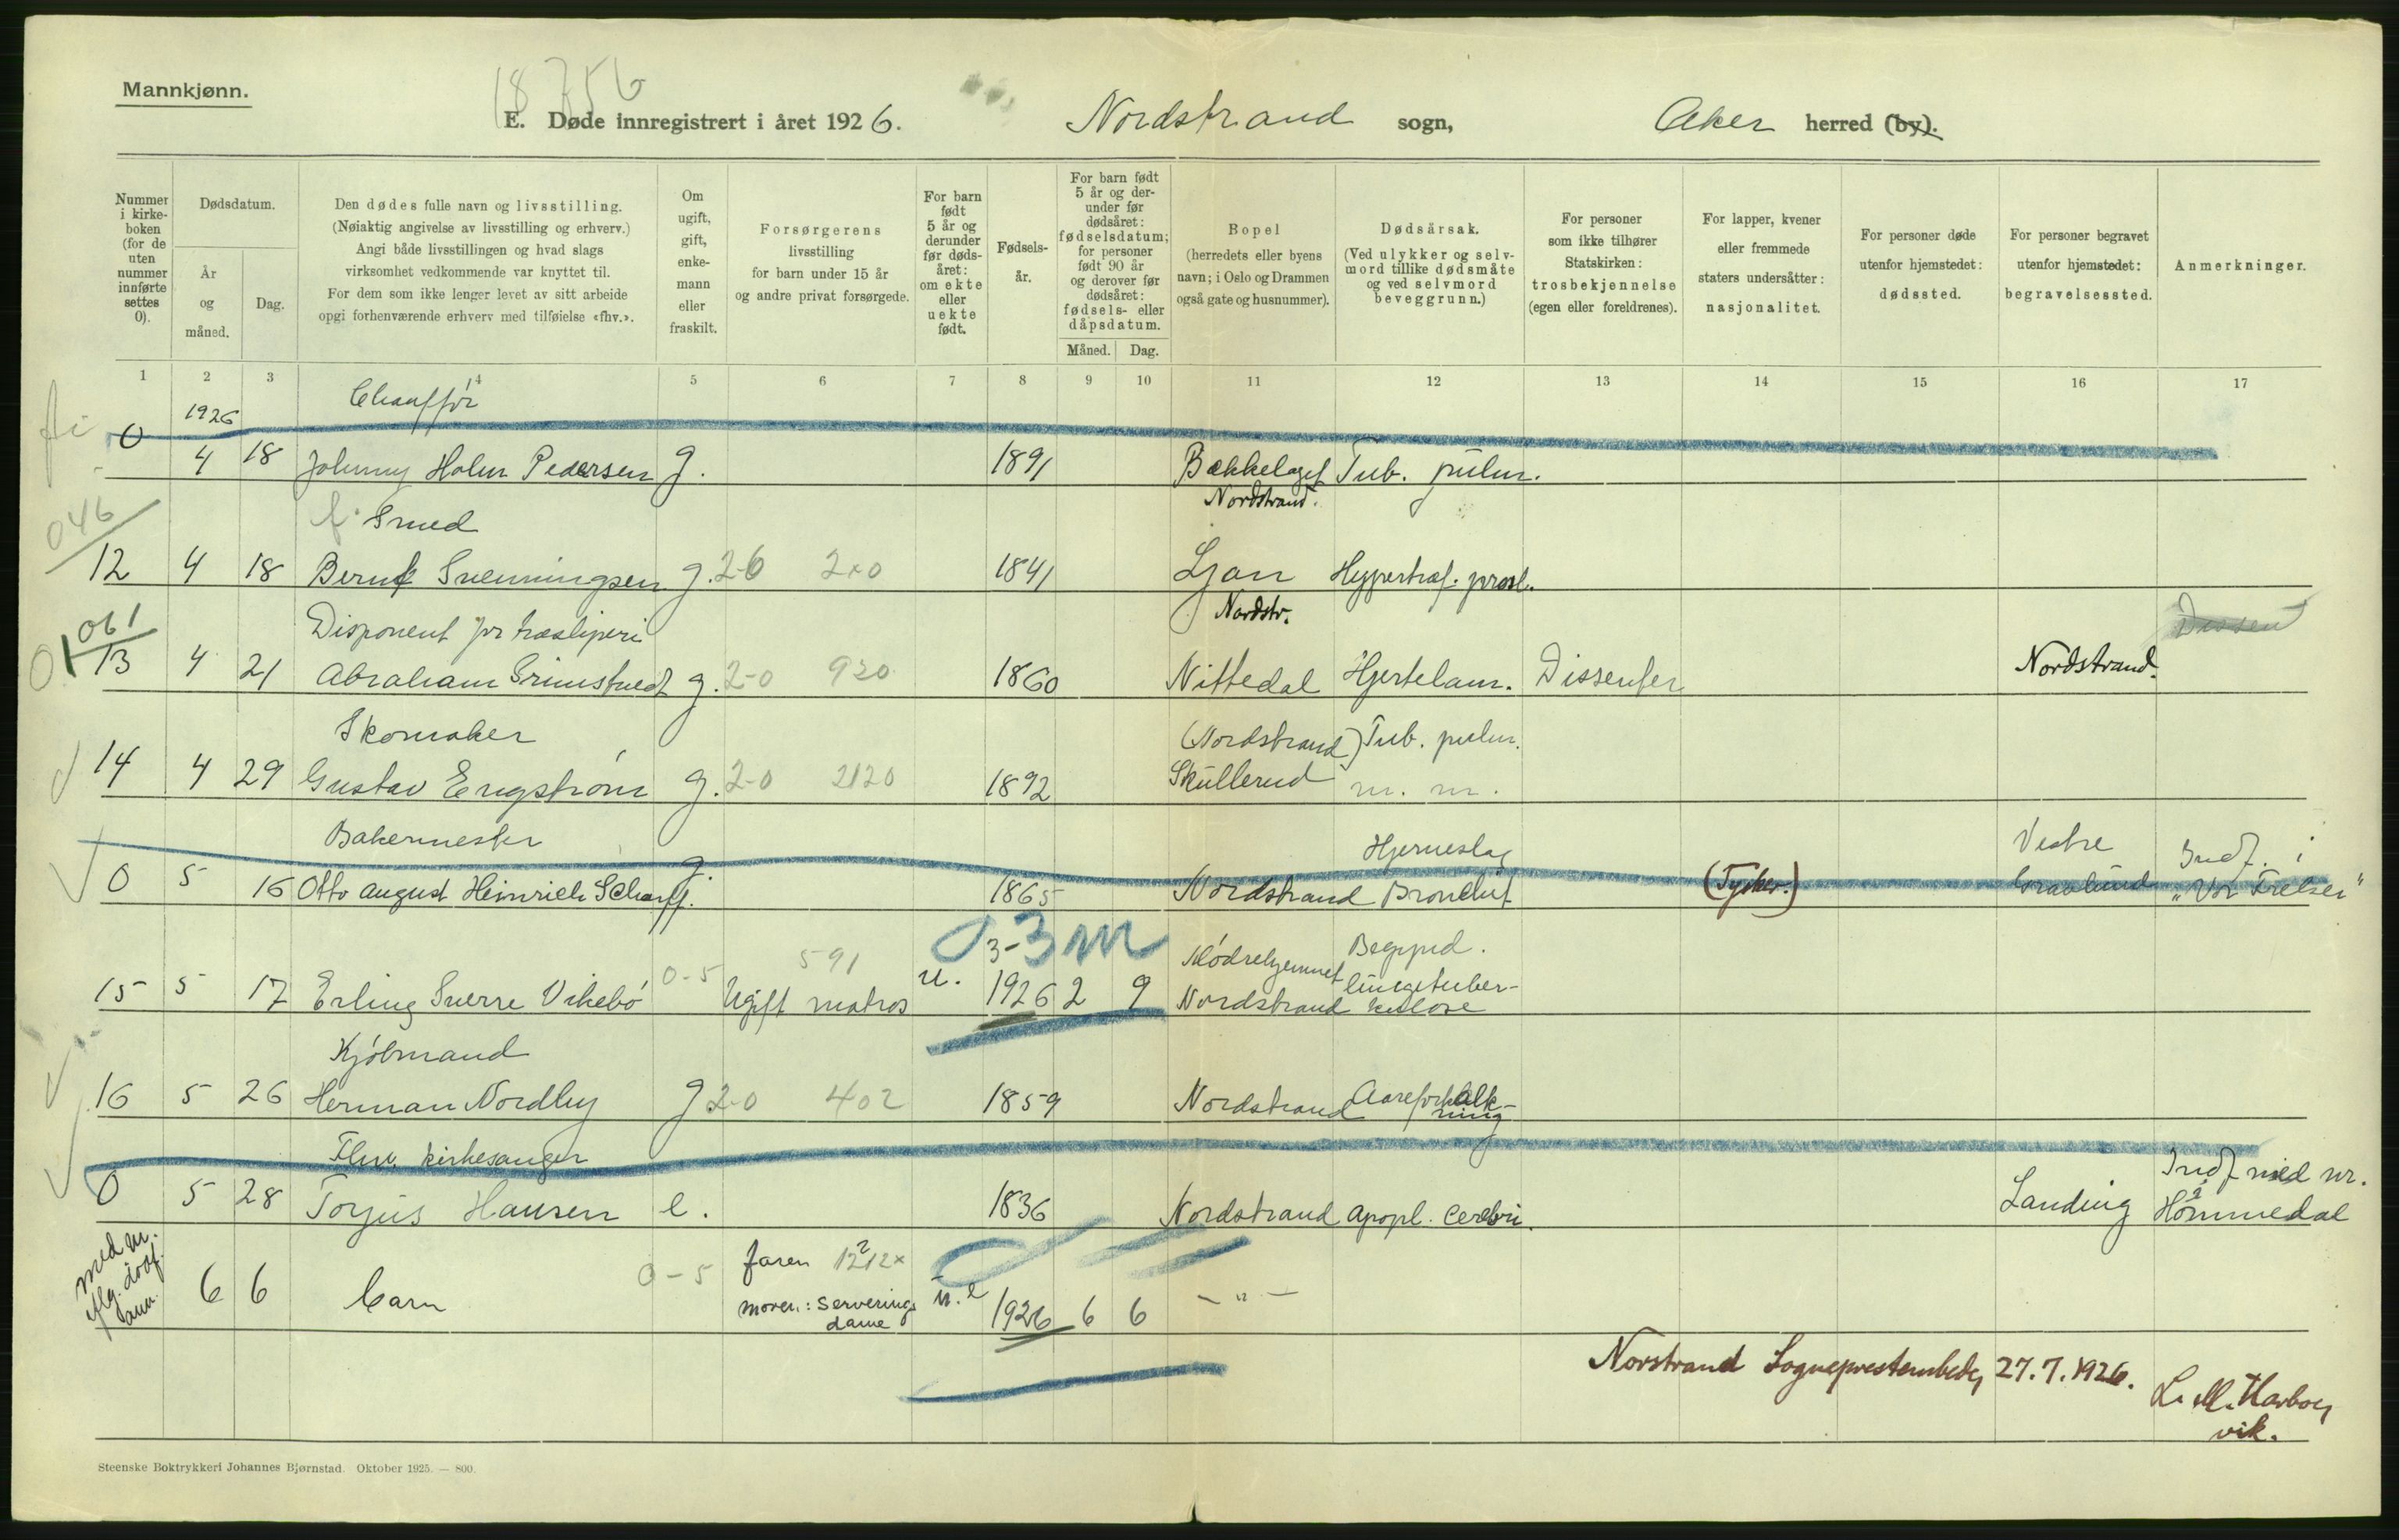 Mannkjønn.
18756
E. Døde innregistrert i året 1926. Nordstrand sogn, Aker herred (by).
Nummer i kirke-boken (for de uten nummer innførte settes 0).
Dødsdatum.
År og måned.
Dag.
Den dødes fulle navn og livsstilling.
(Nøiaktig angivelse av livsstilling og erhverv.)
Angi både livsstillingen og hvad slags
virksomhet vedkommende var knyttet til.
For dem som ikke lenger levet av sitt arbeide
opgi forhenværende erhverv med tilføielse «fhv.».
Om ugift, gift, enke-mann eller fraskilt.
Forsørgerens
livsstilling
for barn under 15 år
og andre privat forsørgede.
For barn født 5 år og derunder før døds-året: om ekte eller uekte født.
Fødsels-år.
For barn født 5 år og der-under før dødsåret: fødselsdatum; for personer født 90 år og derover før dødsåret: fødsels- eller dåpsdatum.
Måned. Dag.
Bopel
(herredets eller byens
navn; i Oslo og Drammen
også gate og husnummer).
Dødsårsak.
(Ved ulykker og selv-
mord tillike dødsmåte
og ved selvmord
beveggrunn.)
For personer
som ikke tilhører
Statskirken:
trosbekjennelse
(egen eller foreldrenes).
For lapper, kvener
eller fremmede
staters undersåtter:
nasjonalitet.
For personer døde
utenfor hjemstedet:
dødssted.
For personer begravet
utenfor hjemstedet:
begravelsessted.
Anmerkninger.
1 2 3 4 5 6 7 8 9 10 11 12 13 14 15 16 17
1926 Chauffør
0 4 18 Johnny Holm Pedersen g. 1891 Bækkelaget Tub. pulm.
Nordstrand.
046 f. Smed
12 4 18 Bernt Svenningsen g. 2-0 2x0 1841 Ljan Hypertrof. prost.
Nordstr.
061 Disponent for træsliperi Dissen
13 4 21 Abraham Grimstvedt g. 2-0 920 1860 Nittedal Hjertelam. Dissenter Nordstrand.
Skomaker (Nordstrand) Tub. pulm.
14 4 29 Gustav Engstrøm g. 2-0 2120 1892 Skullerud m. m.
Bakermester Hjerneslag Vestre Indf. i
0 5 16 Otto August Heinrich Scharff g. 1865 Nordstrand Bronchit (Tysker.) Gravlund "Vor Frelser"
0 3-3 m
591 Mødrehjemmet Begynd.
15 5 17 Erling Sverre Vikebø 0-5 Ugift matros u. 1926 2 9 Nordstrand lungetuber-
kulose
Kjøbmand
16 5 26 Herman Nordby g 2-0 402 1859 Nordstrand Aareforkalk-
ning
Fhv. kirkesanger Indf med nr.
0 5 28 Torjus Hansen e. 1836 Nordstrand Apopl. cerebri. Landvig 2 Hommedal
med nr. faren 1212x
6 6 Barn 0-5 moren: Serverings u. e 1926 6 6 — " —
dame
Norstrand Sogneprestembede, 27.7.1926.
L. M. Harboe,
vik.
Steenske Boktrykkeri Johannes Bjørnstad. Oktober 1925. — 800.